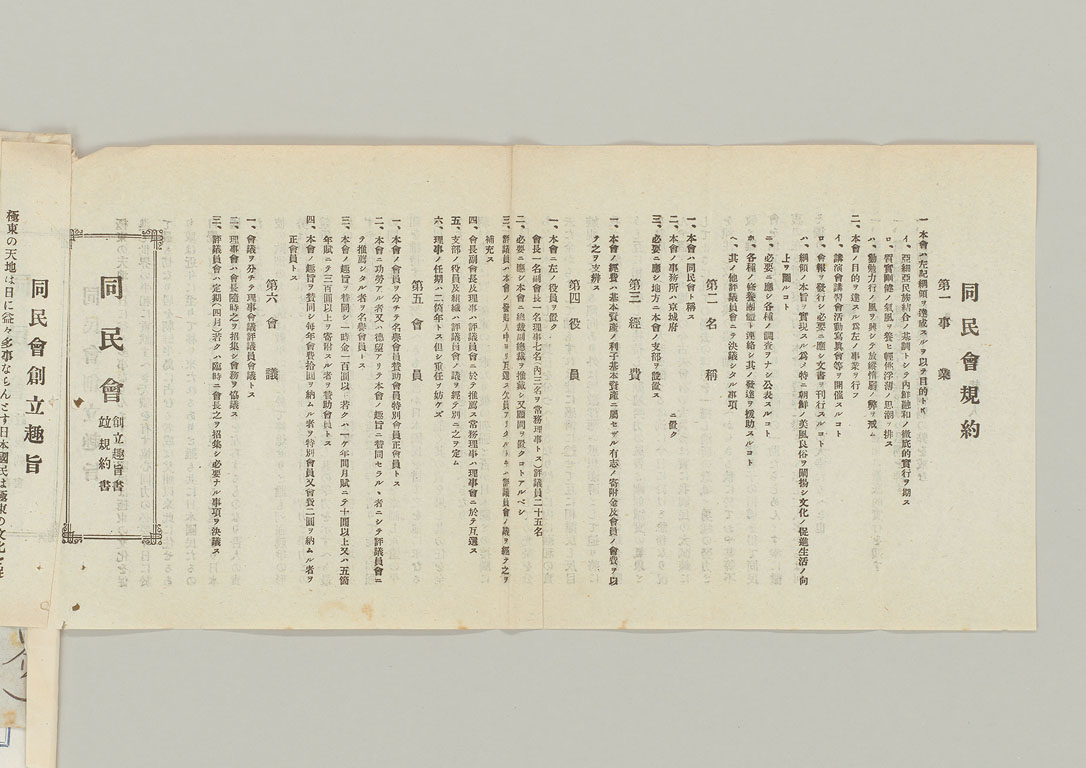 同民會規約
第一 事業
一、本會ハ左記綱領ヲ達成スルヲ以テ目的トス
イ、亞細亞民族結合ノ基調トシテ內鮮融和ノ徹底的實行ヲ期ス
ロ、質實剛健ノ氣風ヲ養ヒ輕佻浮薄ノ思潮ヲ排ス
ハ、勤勉力行ノ風ヲ興シテ放縱惰弱ノ弊ヲ戒ム
二、本會ノ目的ヲ達スル爲左ノ事業ヲ行フ
イ、講演會講習會活動寫眞會等ヲ開催スルコト
ロ、會報ヲ發行シ必要ニ應シ文書ヲ刊行スルコト
ハ、綱領ノ本旨ヲ實現スル爲メ特ニ朝鮮ノ美風良俗ヲ闡揚シ文化ノ促進生活ノ向
上ヲ圖ルコト
ニ、必要ニ應シ各種ノ調査ヲナシ公表スルコト
ホ、各種ノ修養團體ト連絡シ其ノ發達ヲ援助スルコト
ヘ、其ノ他評議員會ニテ決議シタル事項
第二 名稱
一、本會ハ同民會ト稱ス
二、本會ノ事務所ハ京城府 ニ置ク
三、必要ニ應シ地方ニ本會ノ支部ヲ設置ス
第三 經費
一、本會ノ經費ハ基本資產ノ利子基本資產ニ屬セザル有志ノ寄附金及會員ノ會費ヲ以
テ之ヲ支辨ス
第四 役員
一、本會ニ左ノ役員ヲ置ク
會長一名副會長一名理事七名內三名ヲ常務理事トス)評議員二十五名
二、必要ニ應シ本會ニ總裁副總裁ヲ推戴シ又顧問ヲ置クコトアルベシ
三、評議員ハ本會ノ發起人中ヨリ互選ス欠員アリタルトキハ評議員會ノ議ヲ經テ之ヲ
補充ス
四、會長副會長及理事ハ評議員會ニ於テ推薦ス常務理事ハ理事會ニ於テ互選ス
五、支部ノ役員及組織ハ評議員會ノ議ヲ經テ別ニ之ヲ定ム
六、理事ノ任期ハ二箇年トス但シ重任ヲ妨ケズ
第五 會員
一、本會ノ會員ヲ分チテ名譽會員贊助會員特別會員正會員トス
二、本會ニ功勞アル者又ハ德望アリテ本會ノ趣旨ニ贊同セラルヽ者ニシテ評議員會ニ
ヲ推薦シタル者ヲ名譽會員トス
三、本會ノ趣旨ヲ贊同シ一時金一百圓以 若クハ一ケ年間月賦ニテ十圓以上又ハ五箇
年賦ニテ三百圓以上ヲ寄附スル者ヲ贊助會員トス
四、本會ノ趣旨ヲ贊同シ每年會費拾圓ヲ納ムル者ヲ特別會員又會費二圓ヲ納ムル者ヲ
正會員トス
第六 會議
一、會議ヲ分チテ理事會議評議員會議トス
二、理事會ハ會長隨時之ヲ招集シ會務ヲ協議ス
三、評議員會ハ定期(四月)若クハ臨時ニ會長之ヲ招集シ必要ナル事項ヲ決議ス
同民會 創立趣旨書
竝規約書
同民會創立趣旨
極東の天地は日に益々多事ならんとす日本國民は極東の文化を